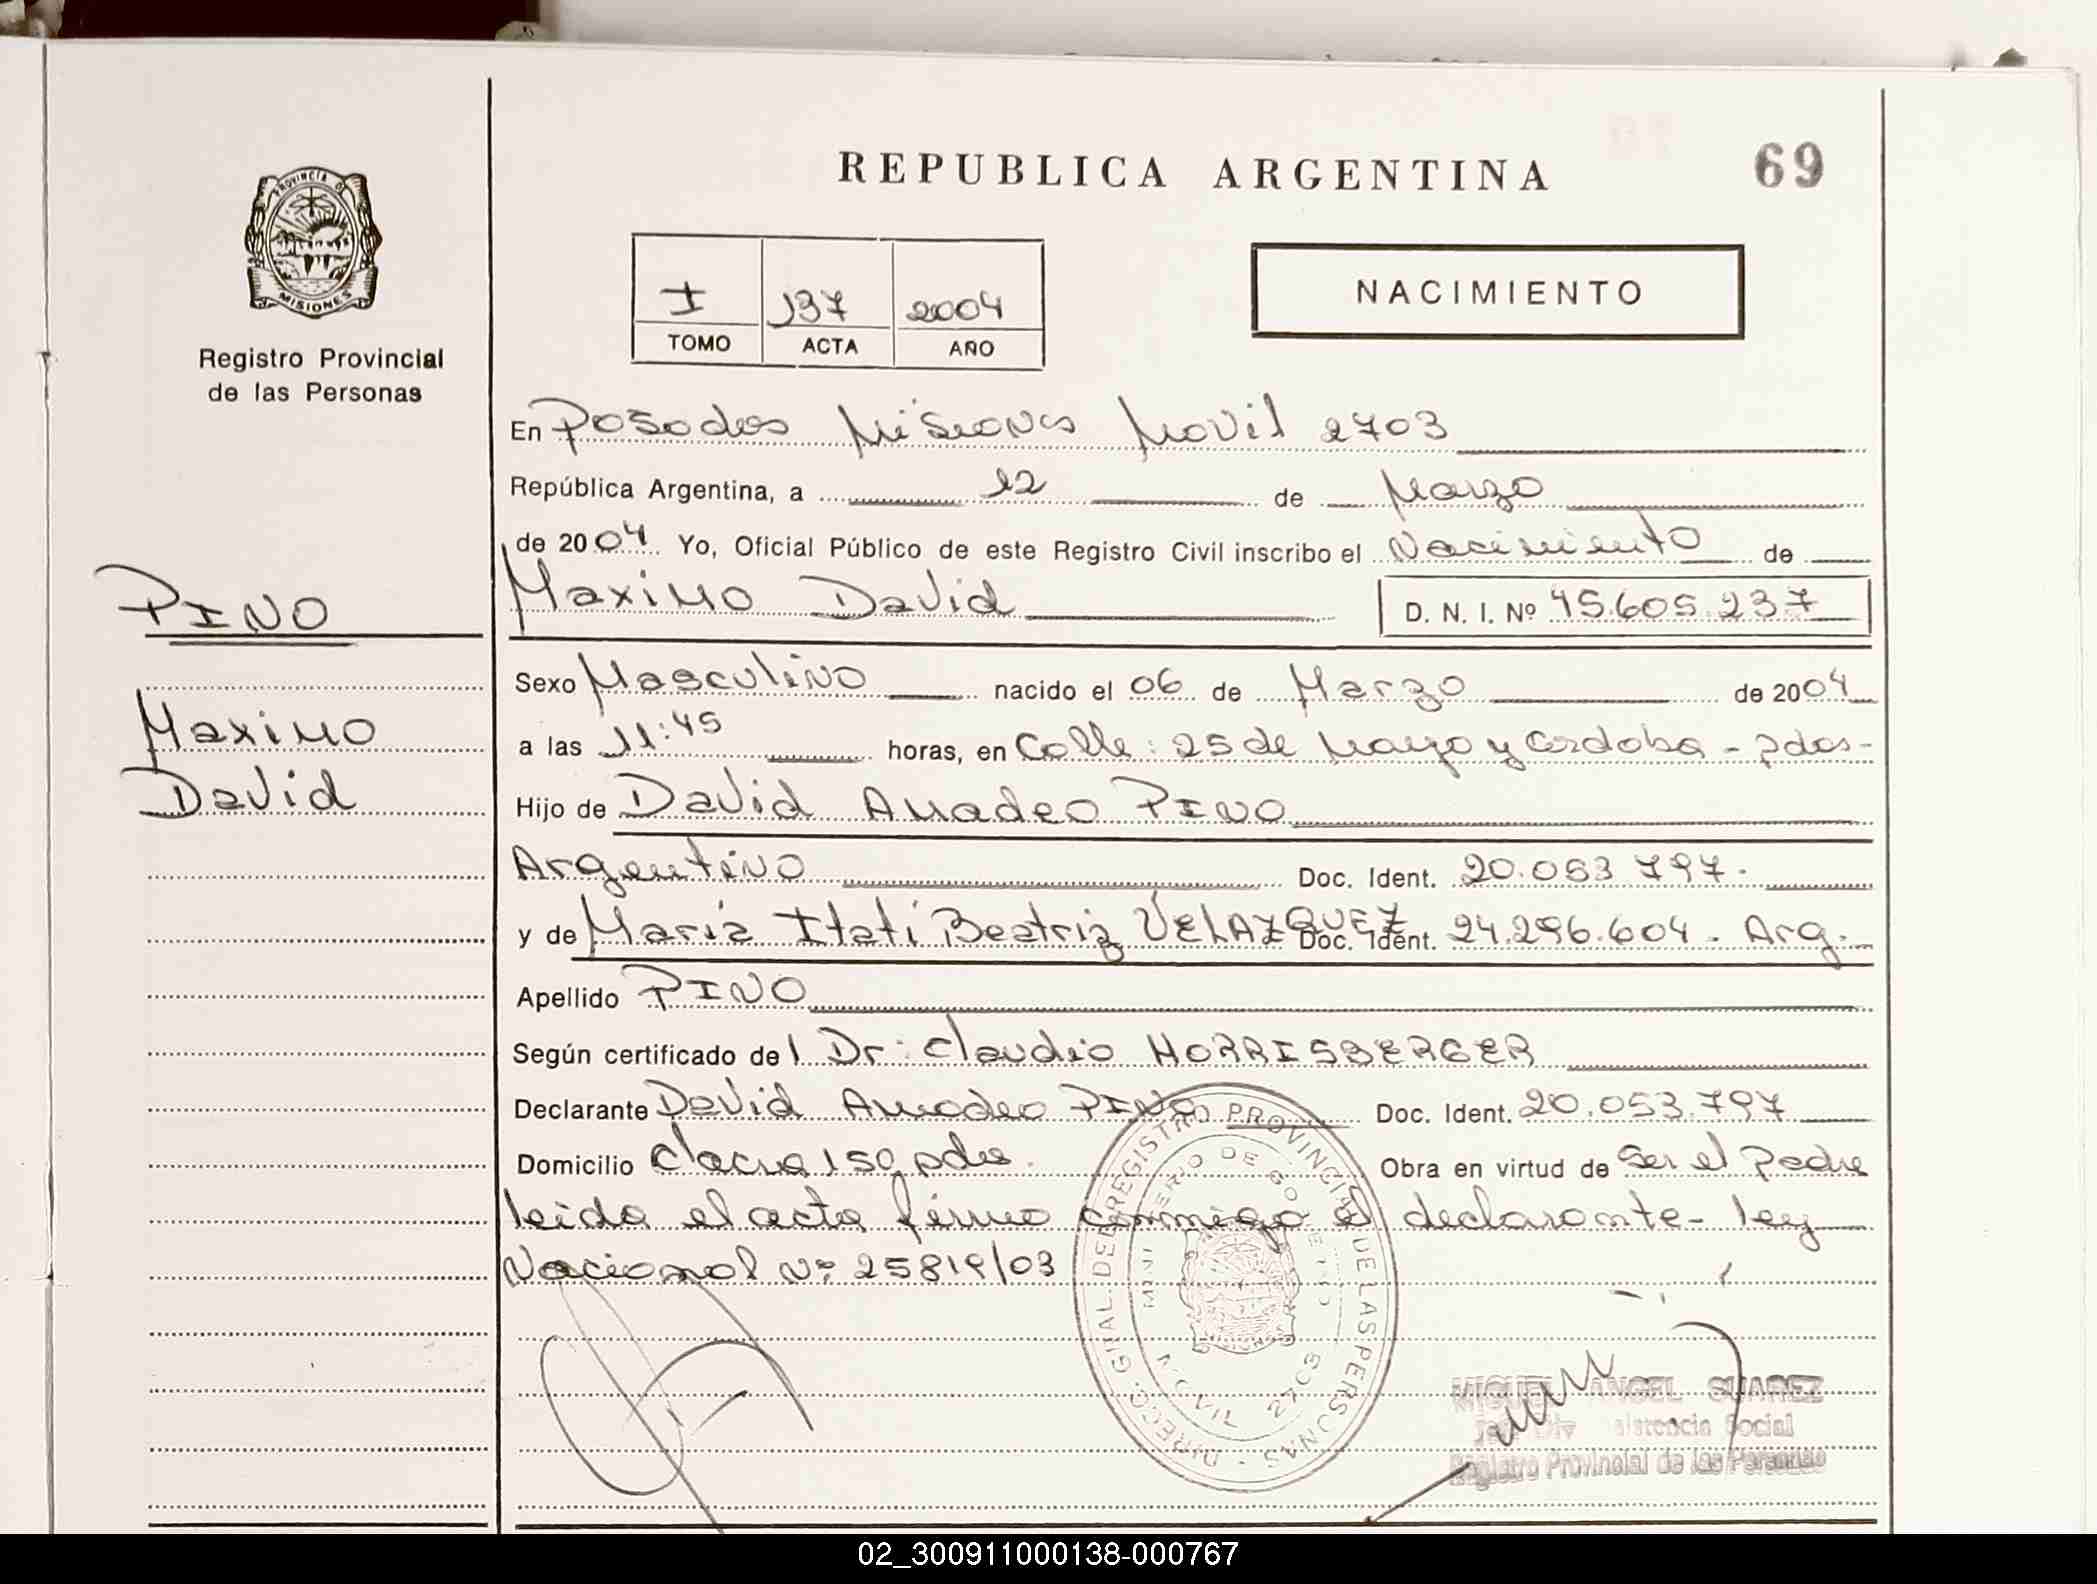 REPUBLICA ARGENTINA
69
PROVINCIA DE
MISIONES
Registro Provincial
de las Personas
I 137 2004
TOMO ACTA AÑO
NACIMIENTO
En Posadas Misiones Movil 2703
República Argentina, a 12 de Marzo
de 2004 Yo, Oficial Público de este Registro Civil inscribo el Nacimiento de
Maximo David D. N. I. Nº 45.605.237
PINO
Maximo
David
Sexo Masculino nacido el 06 de Marzo de 2004
a las 11:45 horas, en Calle: 25 de Mayo y Cordoba - pdas-
Hijo de David Amadeo PINO
Argentino Doc. Ident. 20.053.797.
y de Maria Itati Beatriz VELAZQUEZ Doc. Ident. 24.296.604. Arg.
Apellido PINO
Según certificado del Dr: Claudio HORRISBERGER
Declarante David Amadeo PINO Doc. Ident. 20.053.797
Domicilio 150 pdas. Obra en virtud de Ser el Padre
leida el acta firma conmigo el declarante- ley
Nacional Nº 25819/03
DIRECC. GRAL. DEL REGISTRO PROVINCIAL DE LAS PERSONAS
MINISTERIO DE GOBIERNO
MOVIL 2703
MIGUEL ANGEL SUAREZ
Social
Registro Provincial de las Personas
02_300911000138-000767